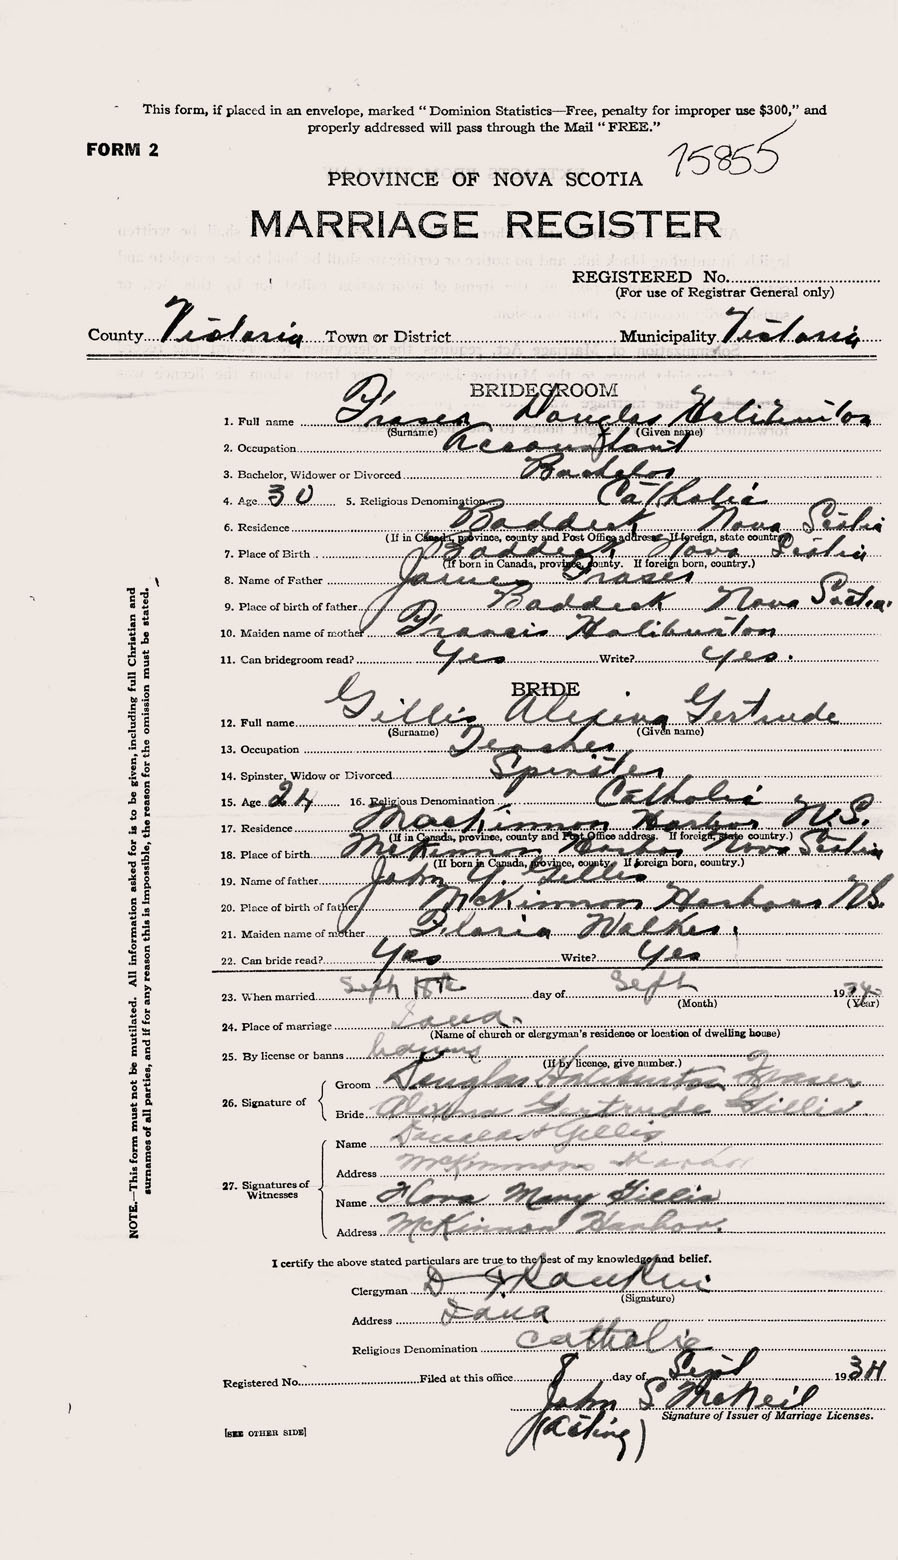 This form, if placed in an envelope, marked “Dominion Statistics—Free, penalty for improper use $300,” and
properly addressed will pass through the Mail “FREE.”
FORM 2
75855
PROVINCE OF NOVA SCOTIA
MARRIAGE REGISTER
REGISTERED No.
(For use of Registrar General only)
County Victoria Town or District Municipality Victoria
BRIDEGROOM
1. Full name Fraser Douglas Haliburton
(Surname) (Given name)
2. Occupation Accountant
3. Bachelor, Widower or Divorced Bachelor
4. Age 30 5. Religious Denomination Catholic
6. Residence Baddeck Nova Scotia
(If in Canada, province, county and Post Office address. If foreign, state country.)
7. Place of Birth Baddeck Nova Scotia
(If born in Canada, province, county. If foreign born, country.)
8. Name of Father James Fraser
9. Place of birth of father Baddeck Nova Scotia.
10. Maiden name of mother Francis Haliburton
11. Can bridegroom read? Yes Write? Yes.
BRIDE
12. Full name Gillis Alexina Gertrude
(Surname) (Given name)
13. Occupation Teacher
14. Spinster, Widow or Divorced Spinster
15. Age 24 16. Religious Denomination Catholic
17. Residence MacKinnon Harbor N.S.
(If in Canada, province, county and Post Office address. If foreign, state country.)
18. Place of birth McKinnon Harbor Nova Scotia
(If born in Canada, province, county. If foreign born, country.)
19. Name of father John Y. Gillis
20. Place of birth of father McKinnon Harbour N.S.
21. Maiden name of mother Floria Walker.
22. Can bride read? Yes Write? Yes
23. When married Sept 18th day of Sept 1934
(Month) (Year)
24. Place of marriage Iona.
(Name of church or clergyman's residence or location of dwelling house)
25. By license or banns banns
(If by licence, give number.)
26. Signature of
Groom Douglas Haliburton Fraser
Bride Alexina Gertrude Gillis.
27. Signatures of Witnesses
Name Gillis
Address McKinnons Harbor
Name Flora Mary Gillis
Address McKinnon Harbor.
I certify the above stated particulars are true to the best of my knowledge and belief.
Clergyman D Rankin
(Signature)
Address Iona
Religious Denomination Catholic
Registered No. Filed at this office 8 day of Sept 1934
John S McNeil
Signature of Issuer of Marriage Licenses.
(Acting)
[SEE OTHER SIDE]
NOTE.—This form must not be mutilated. All information asked for is to be given, including full Christian and
surnames of all parties, and if for any reason this is impossible, the reason for the omission must be stated.